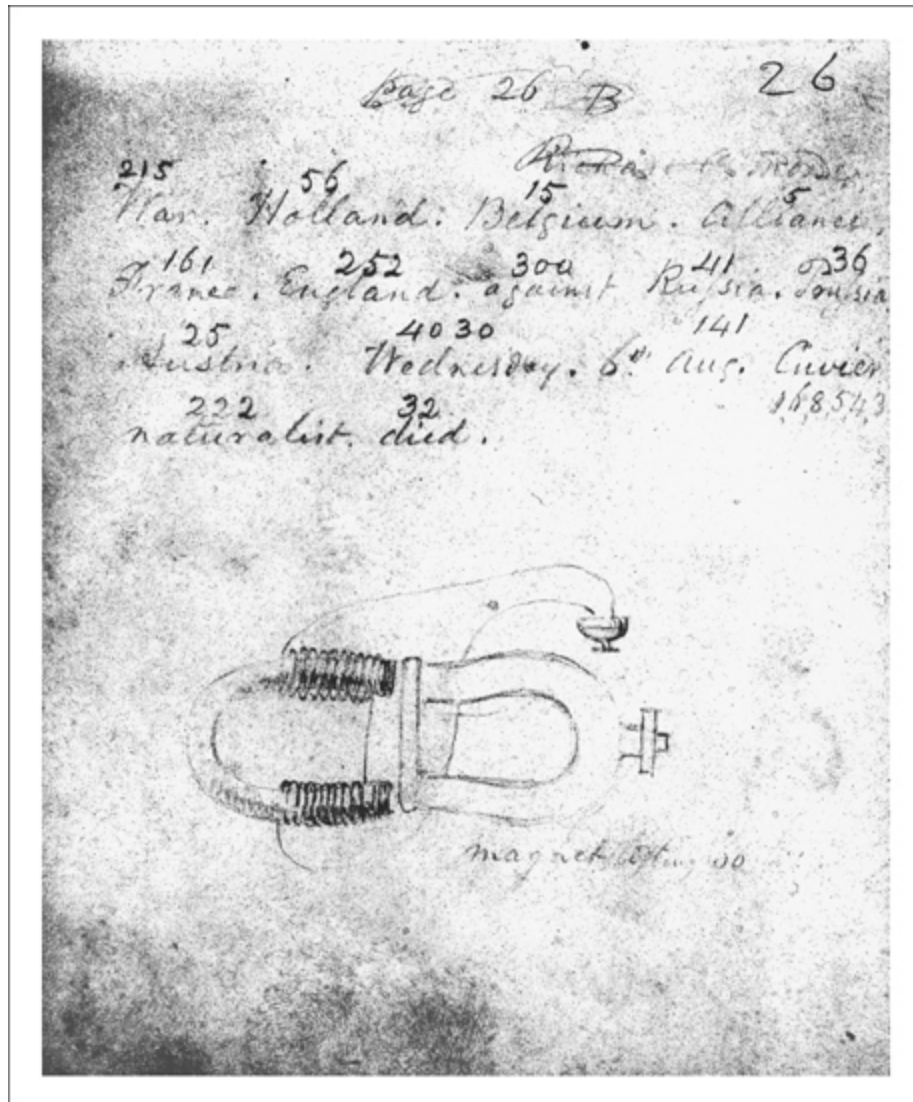 Page 26 B 26
215 56 15 5
War. Holland. Belgium. Alliance.
161 252 300 41 36
France. England. against Russia. Prussia
25 40 30 141
Austria. Wednesday. 6th Aug. Cuvier
222 32 168543
naturalist. died.
magnet